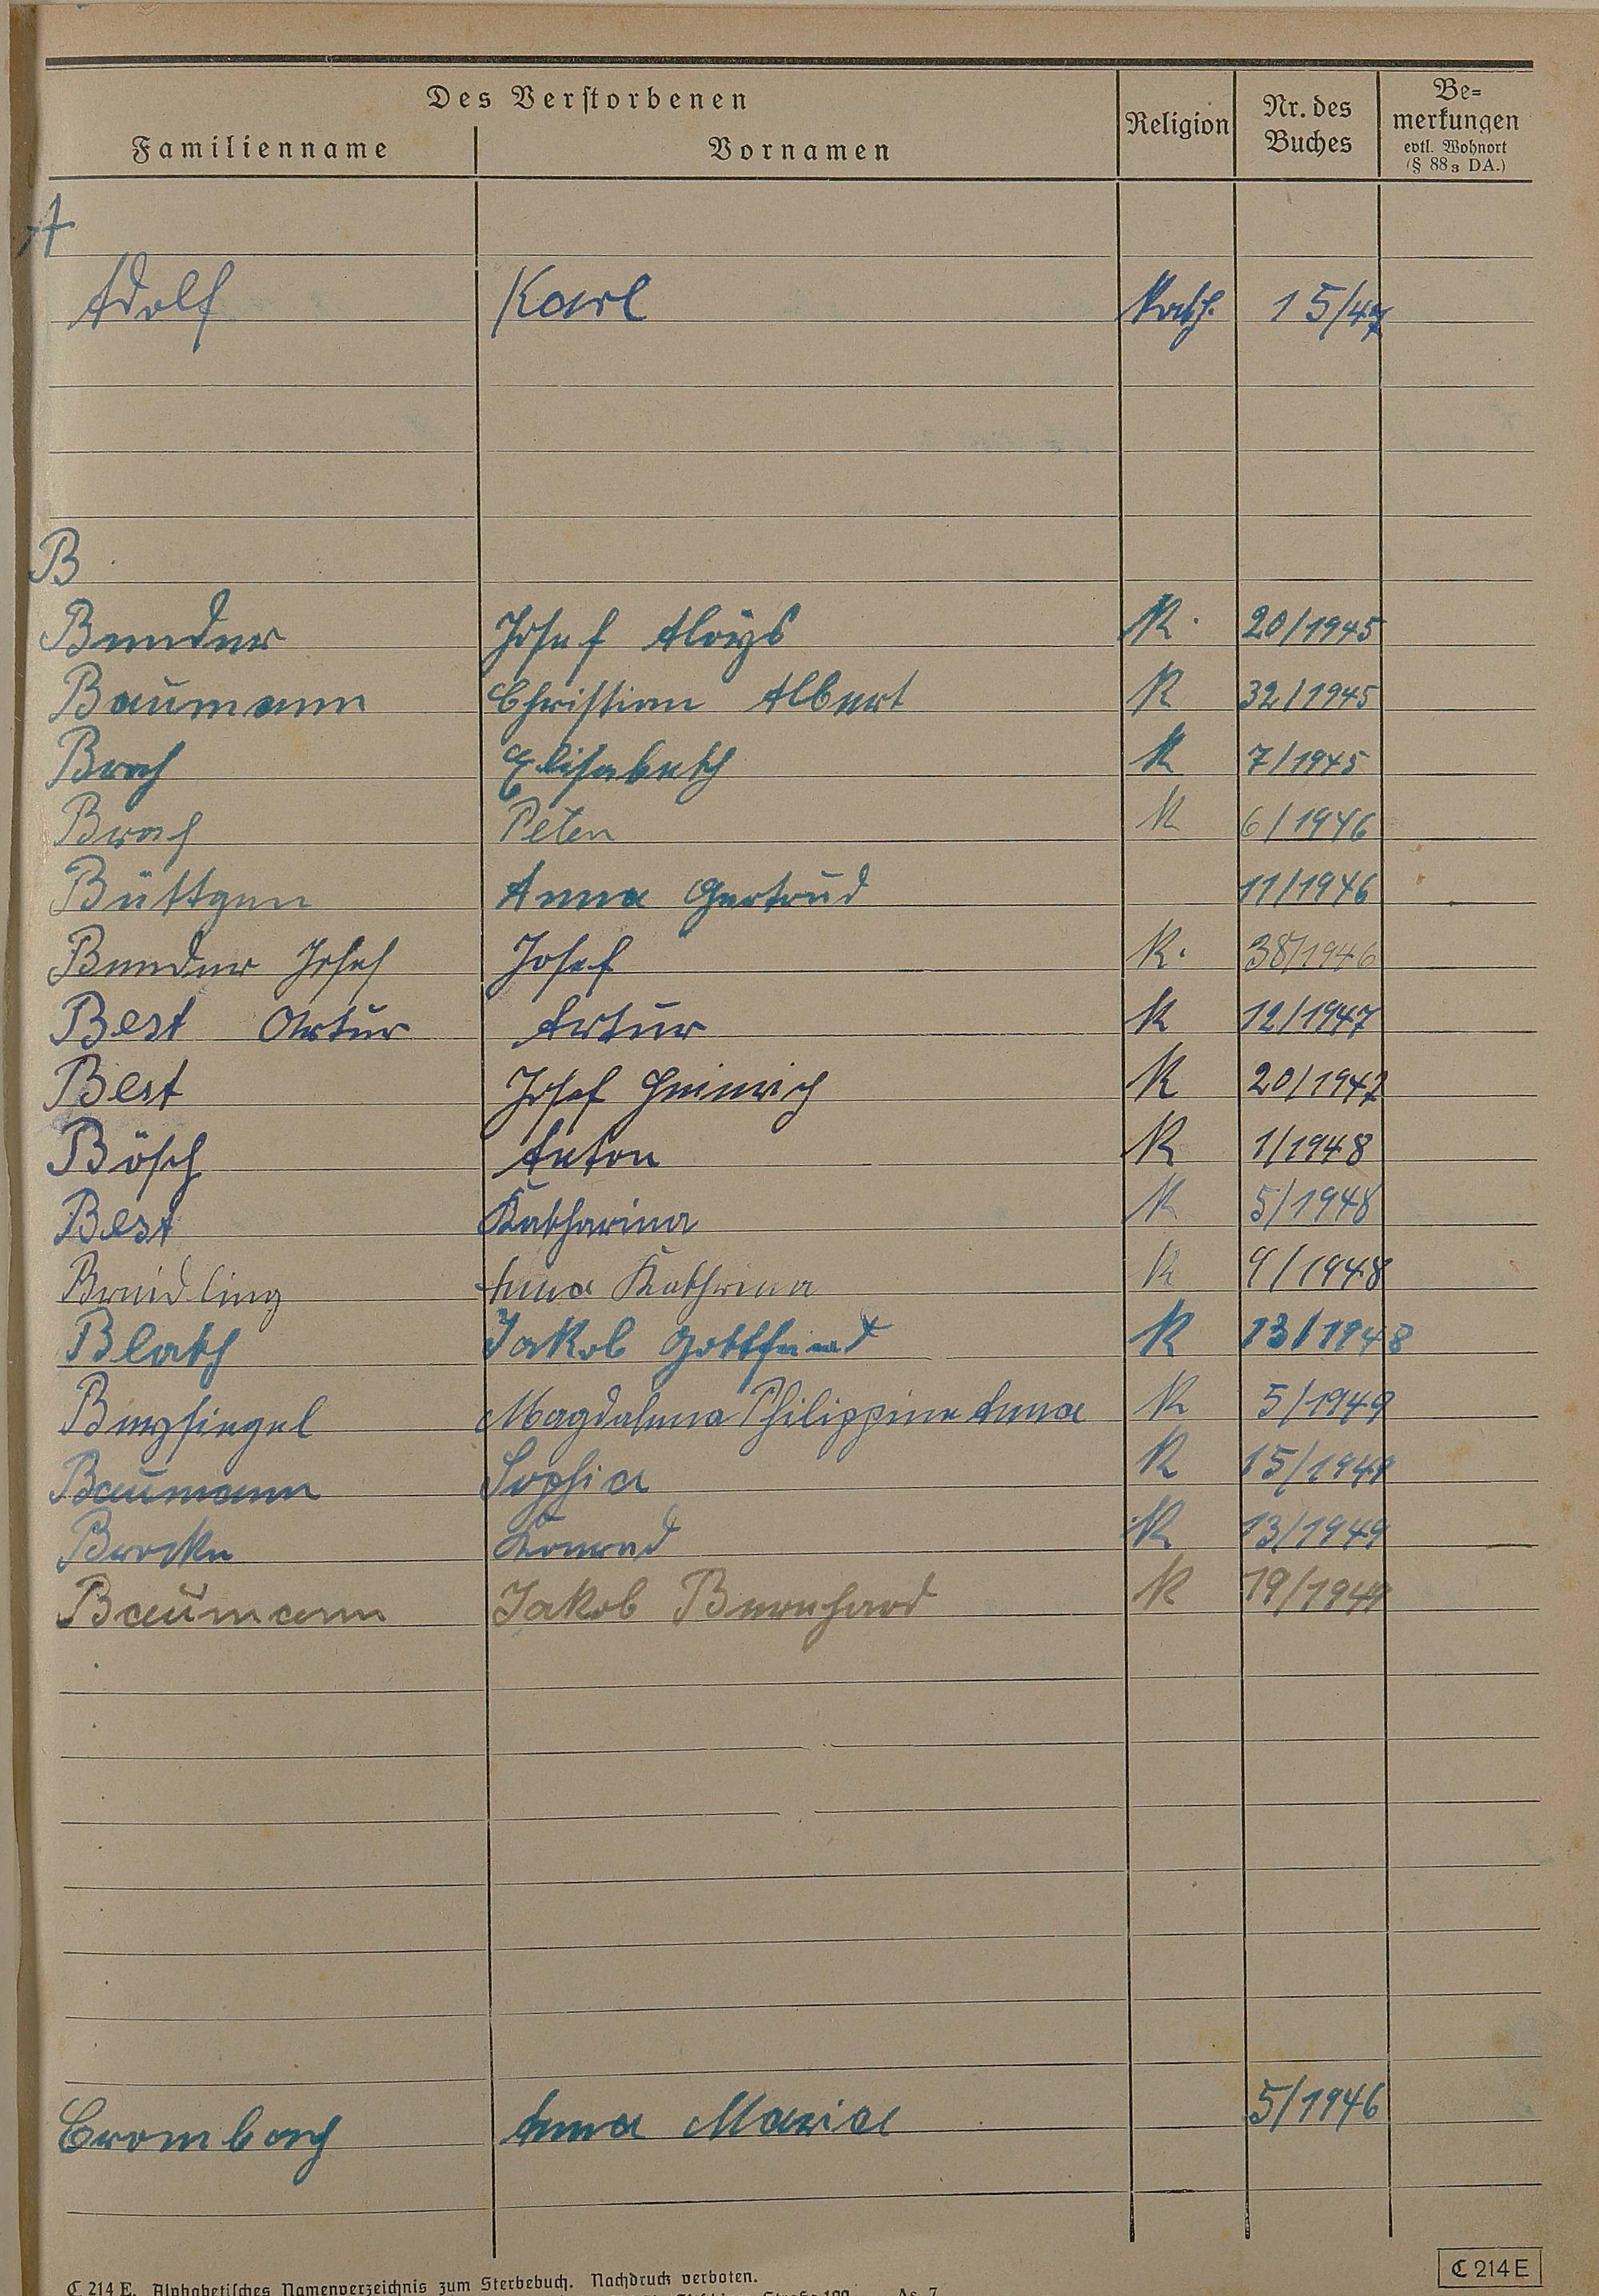 Des Verstorbenen
Familienname Vornamen Religion Nr. des Buches Be=merkungen evtl. Wohnort (§ 88₃ DA.)
A
Adolf Karl Kath. 15/47
B
Bender Josef Aloys K. 20/1945
Baumann Christian Albert K 32/1945
Brach Elisabeth K 7/1945
Brach Peter K 6/1946
Büttgen Anna Gertrud 11/1946
Bender Josef Josef K. 38/1946
Best Artur Artur K 12/1947
Best Josef Heinrich K 20/1947
Bösch Anton K 1/1948
Best Katharina K 5/1948
Breidling Anna Kathrina K 9/1948
Blath Jakob Gottfried K 13/1948
Magdalena Philippine Anna K 5/1949
Baumann Sophia K 15/1949
Brocker Konrad K 13/1949
Baumann Jakob Bernhard K 19/1949
Crombach Anna Maria 5/1946
C 214 E. Alphabetisches Namenverzeichnis zum Sterbebuch. Nachdruck verboten.
C 214 E